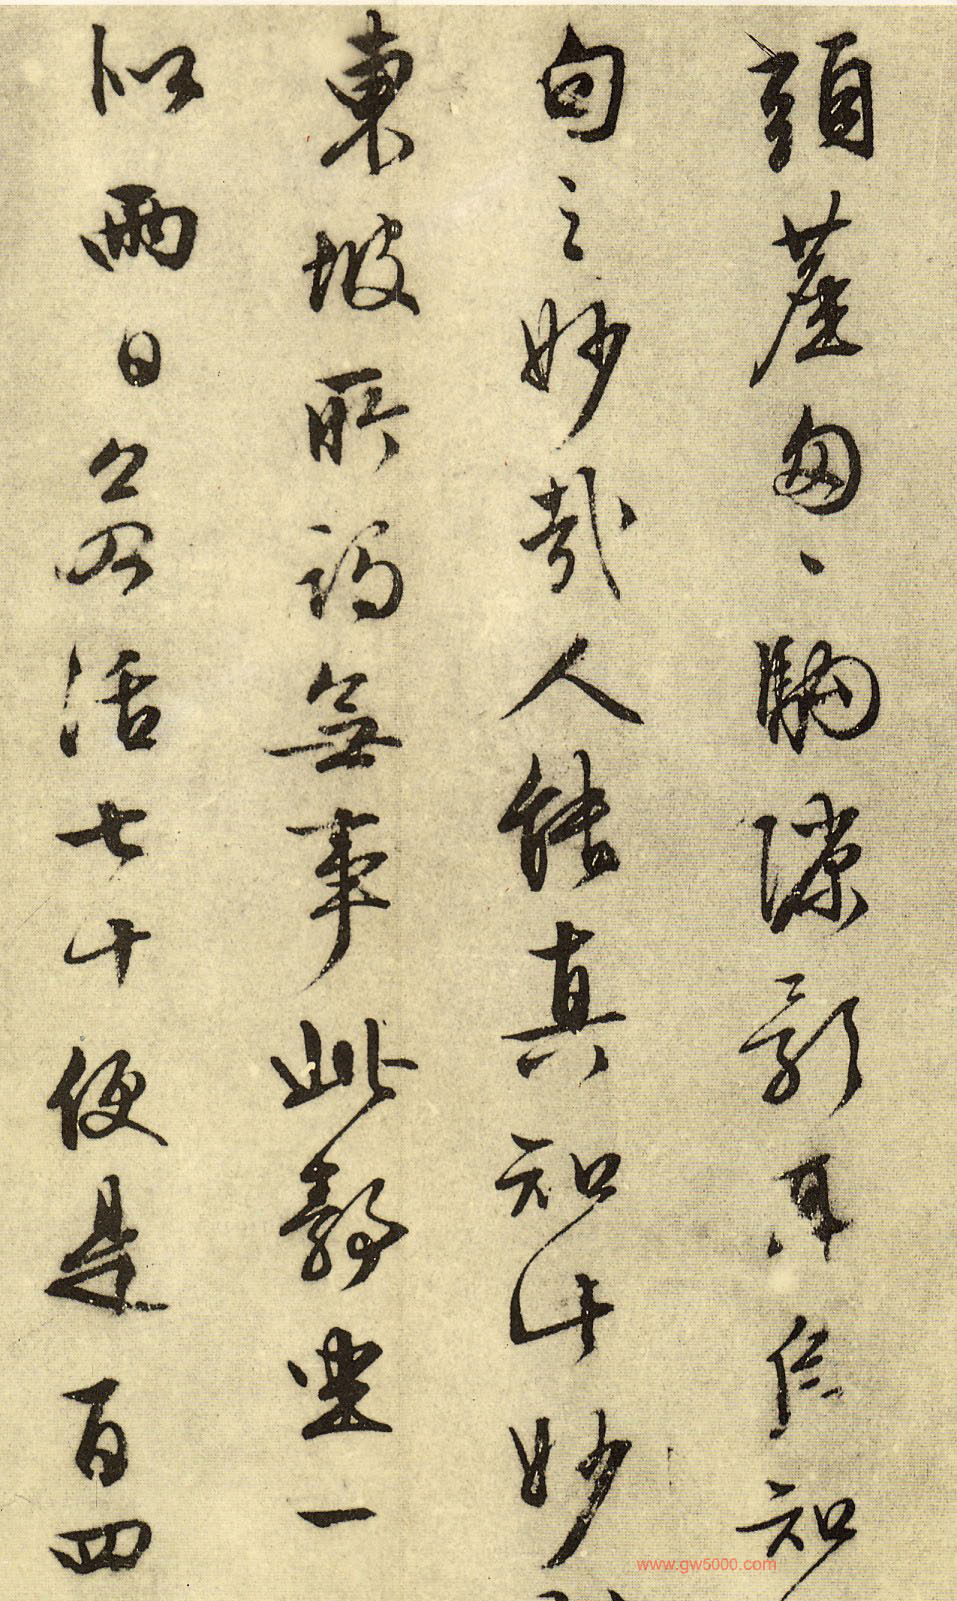 頭塵匆、駒隙影耳信知
句之妙哉人能真知此妙
東坡所謂無事此靜坐一
似兩日若活七十便是百四
www.gw5000.com